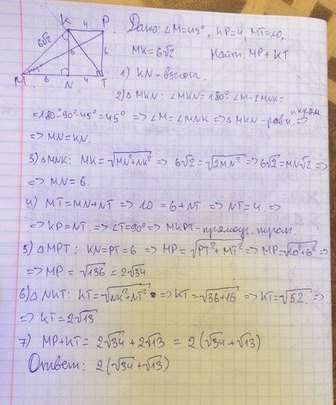 K 4 P
6√2
6
6
M 6 N 4 T
Дано: ∠M=45°, KP=4, MT=10,
MK=6√2 Найти MP+KT
1) KN - высота.
2) △MKN: ∠MKN=180°-∠M-∠MNK=
=180°-90°-45°=45° => ∠M=∠MNK => △MKN - равн. =>
=> MN=KN.
3) △MNK: MK=√MN²+NK² => 6√2=√2MN² => 6√2=MN√2 =>
=> MN=6.
4) MT=MN+NT => 10=6+NT => NT=4 =>
=> KP=NT => ∠T=90° => MKPT - прямоуг. трап.
5) △MPT: KN=PT=6 => MP=√PT²+MT² => MP=√10²+6² =>
=> MP=√136=2√34
6) △NKT: KT=√NK²+NT² => KT=√36+16 => KT=√52 =>
=> KT=2√13
7) MP+KT=2√34+2√13=2(√34+√13)
Ответ: 2(√34+√13)